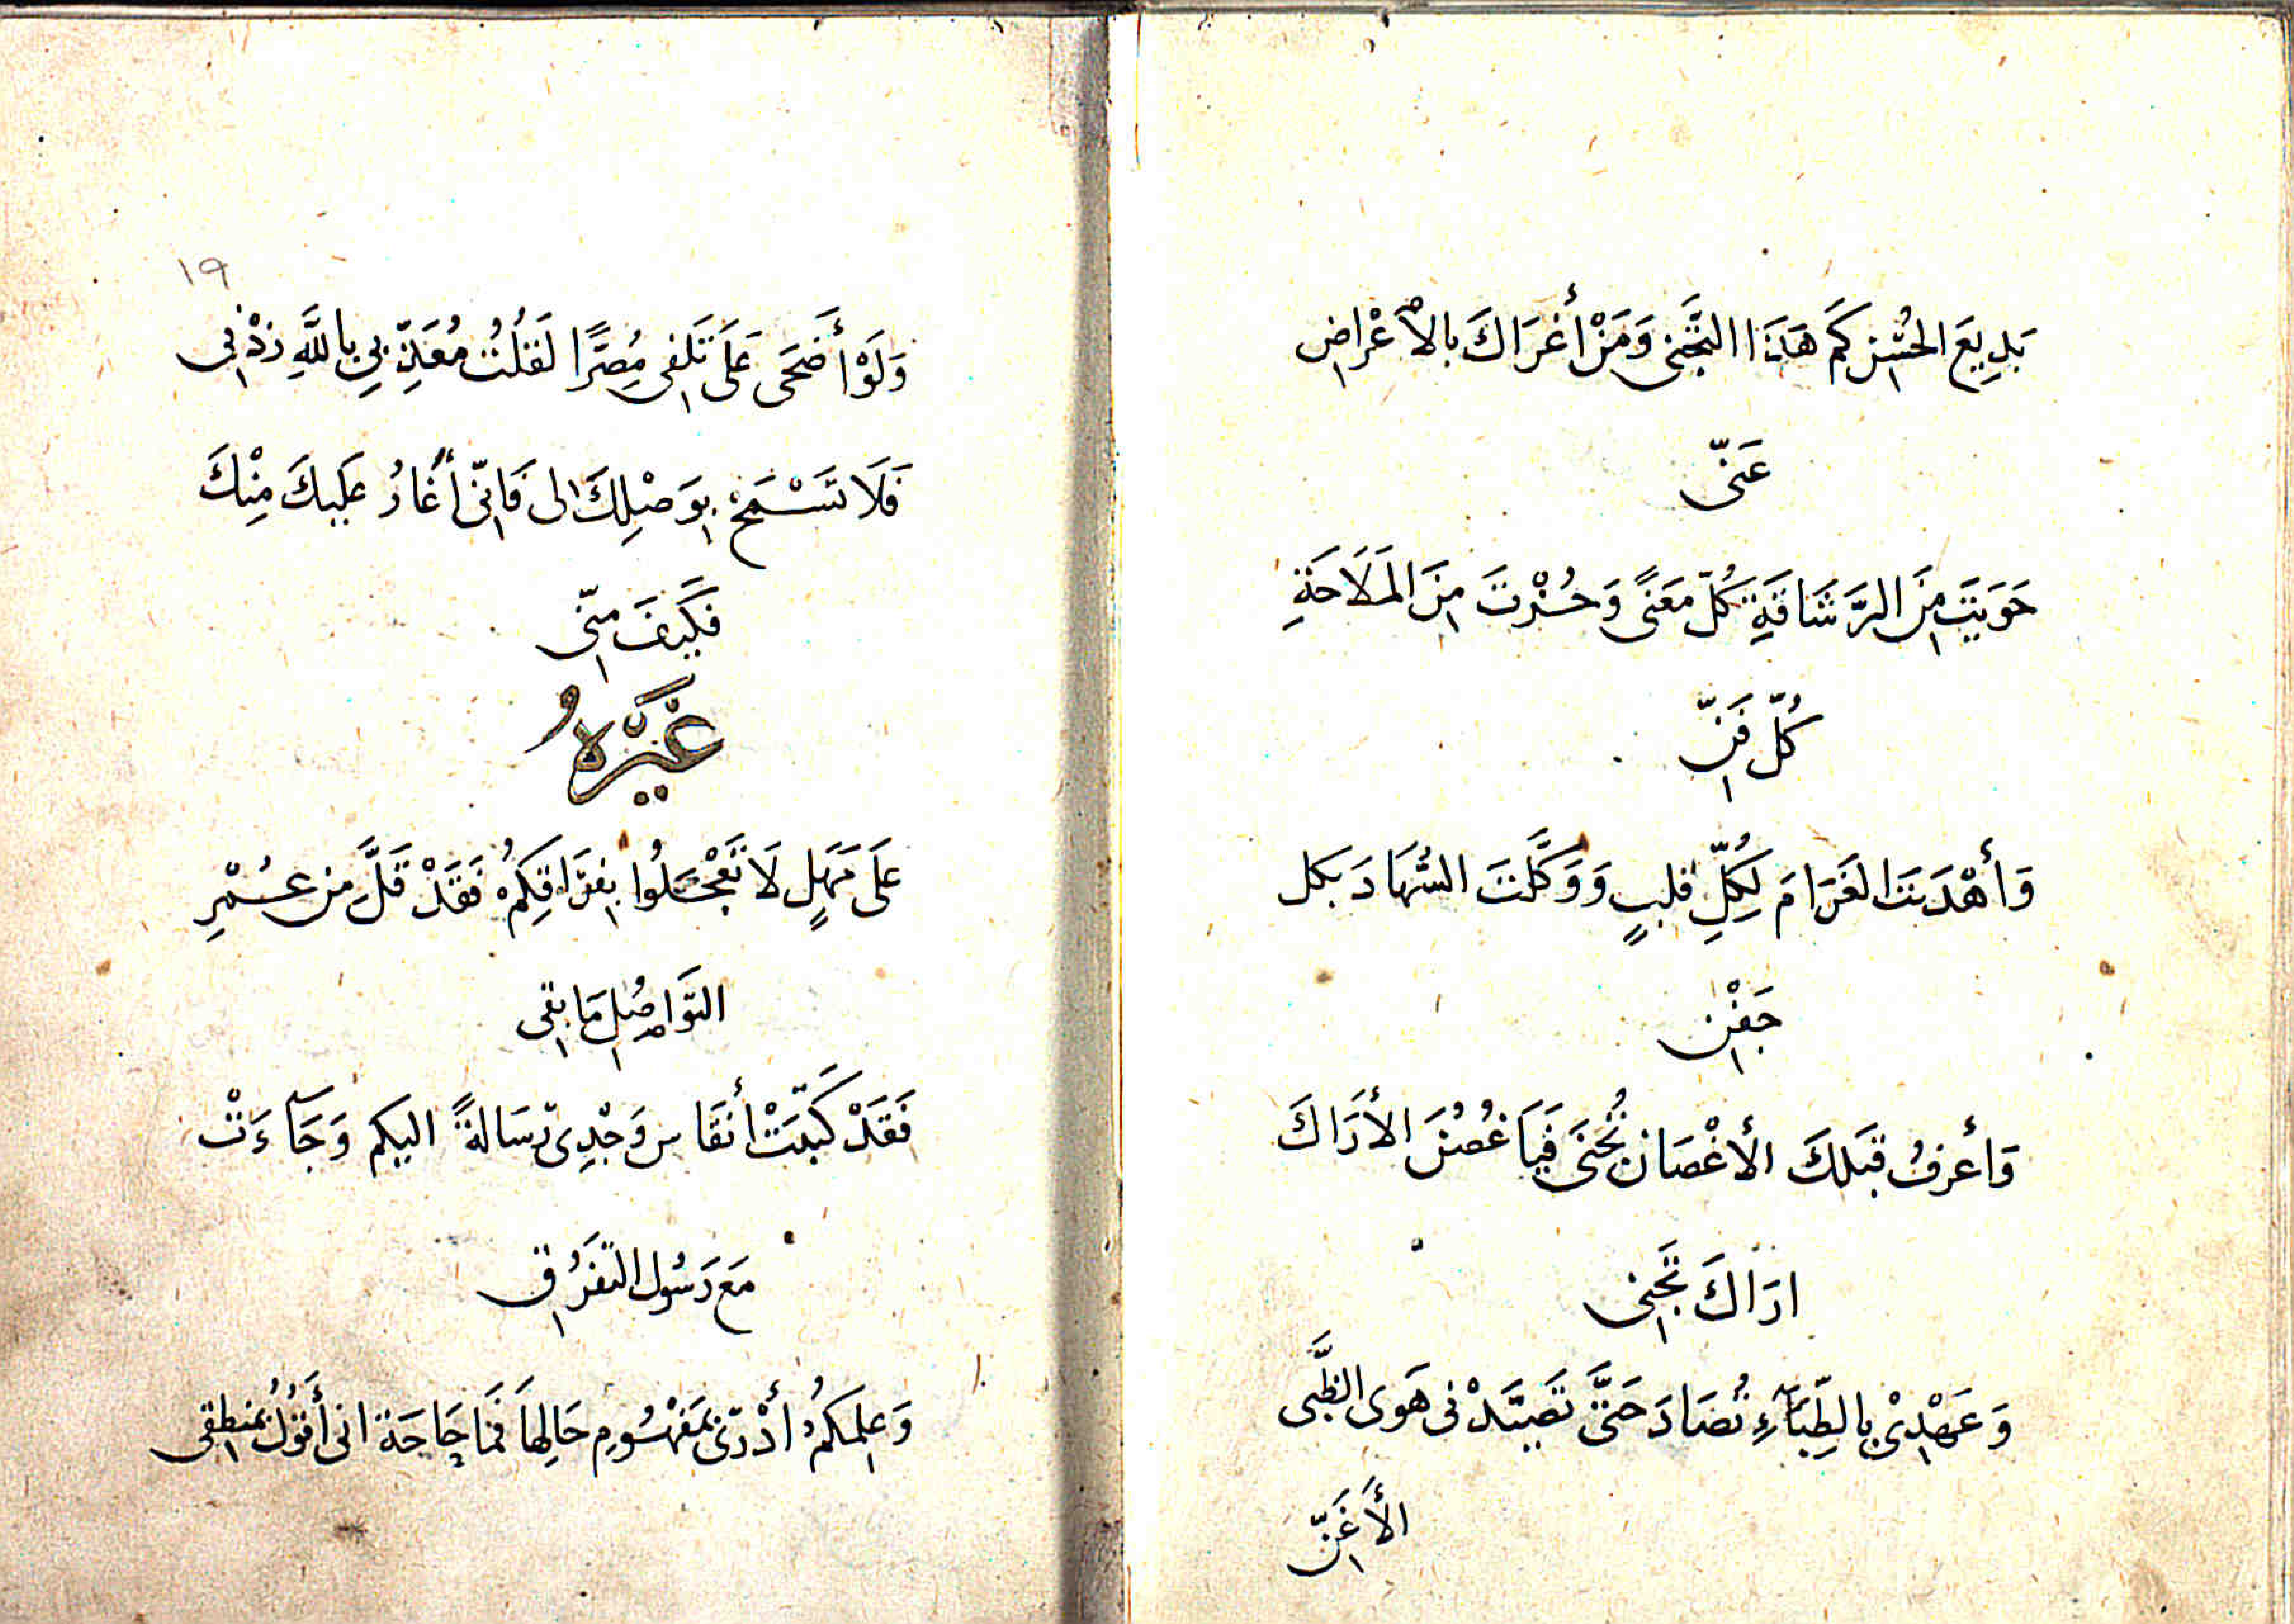 بَدِيعَ الحُسْنِ كَمْ هَذَا التَّجَنِى وَمَنْ أَغْرَاكَ بِالأَعْرَاضِ
عَنّى
حَوَيْتَ مِنَ الرَّشَاقَةِ كُلَّ مَعْنًى وَحُزْتَ مِنَ المَلَاحَةِ
كُلّ فَنِّ
وَأَهْدَيْتَ الغَرَامَ لِكُلِّ قَلبٍ وَوَكَّلْتَ السُّهَادَ بكل
جَفْنِ
وَأَعرِفُ قَبْلكَ الأَغْصَان تُجْنَى فَيَا غُصْنَ الأَرَاكَ
ارَاكَ تَجْنِى
وَعَهْدِىْ بِالظِّبَآءِ تُصَادَ حَتَّى تَصَيَّدْنِى هَوَى الظَّبى
الأَغَنِّ
١٩
وَلَوْ أَضْحَى عَلَى تَلَفِى مُصِرًّا لَقُلْتُ مُعَذِّبِي بِاللَّهِ زِدْنِى
فَلَا تَسْمَحْ بِوَصْلِكَ لى فَاِنّى أَغَارُ عَلَيكَ مِنْكَ
فَكَيفَ مِنّى
غَيْرُهُ
عَلَى مَهَلٍ لَا تَعْجَلُوا بِفِرَاقِكُمْ فَقَدْ قَلَّ مِن عُمْرِ
التَّوَاصُلِ مَا بقى
فَقَدْ كَتَبَتْ أَنفَاس وَجْدِى رِسَالةً اليكم وَجَآءَتْ
مَع رَسُول التَّفَرُقِ
وَعِلمكمُ أَدْرَى بِمَفْهُومِ حَالِهَا فَمَا حَاجَة انى أَقُوْلُ بمنطِقى